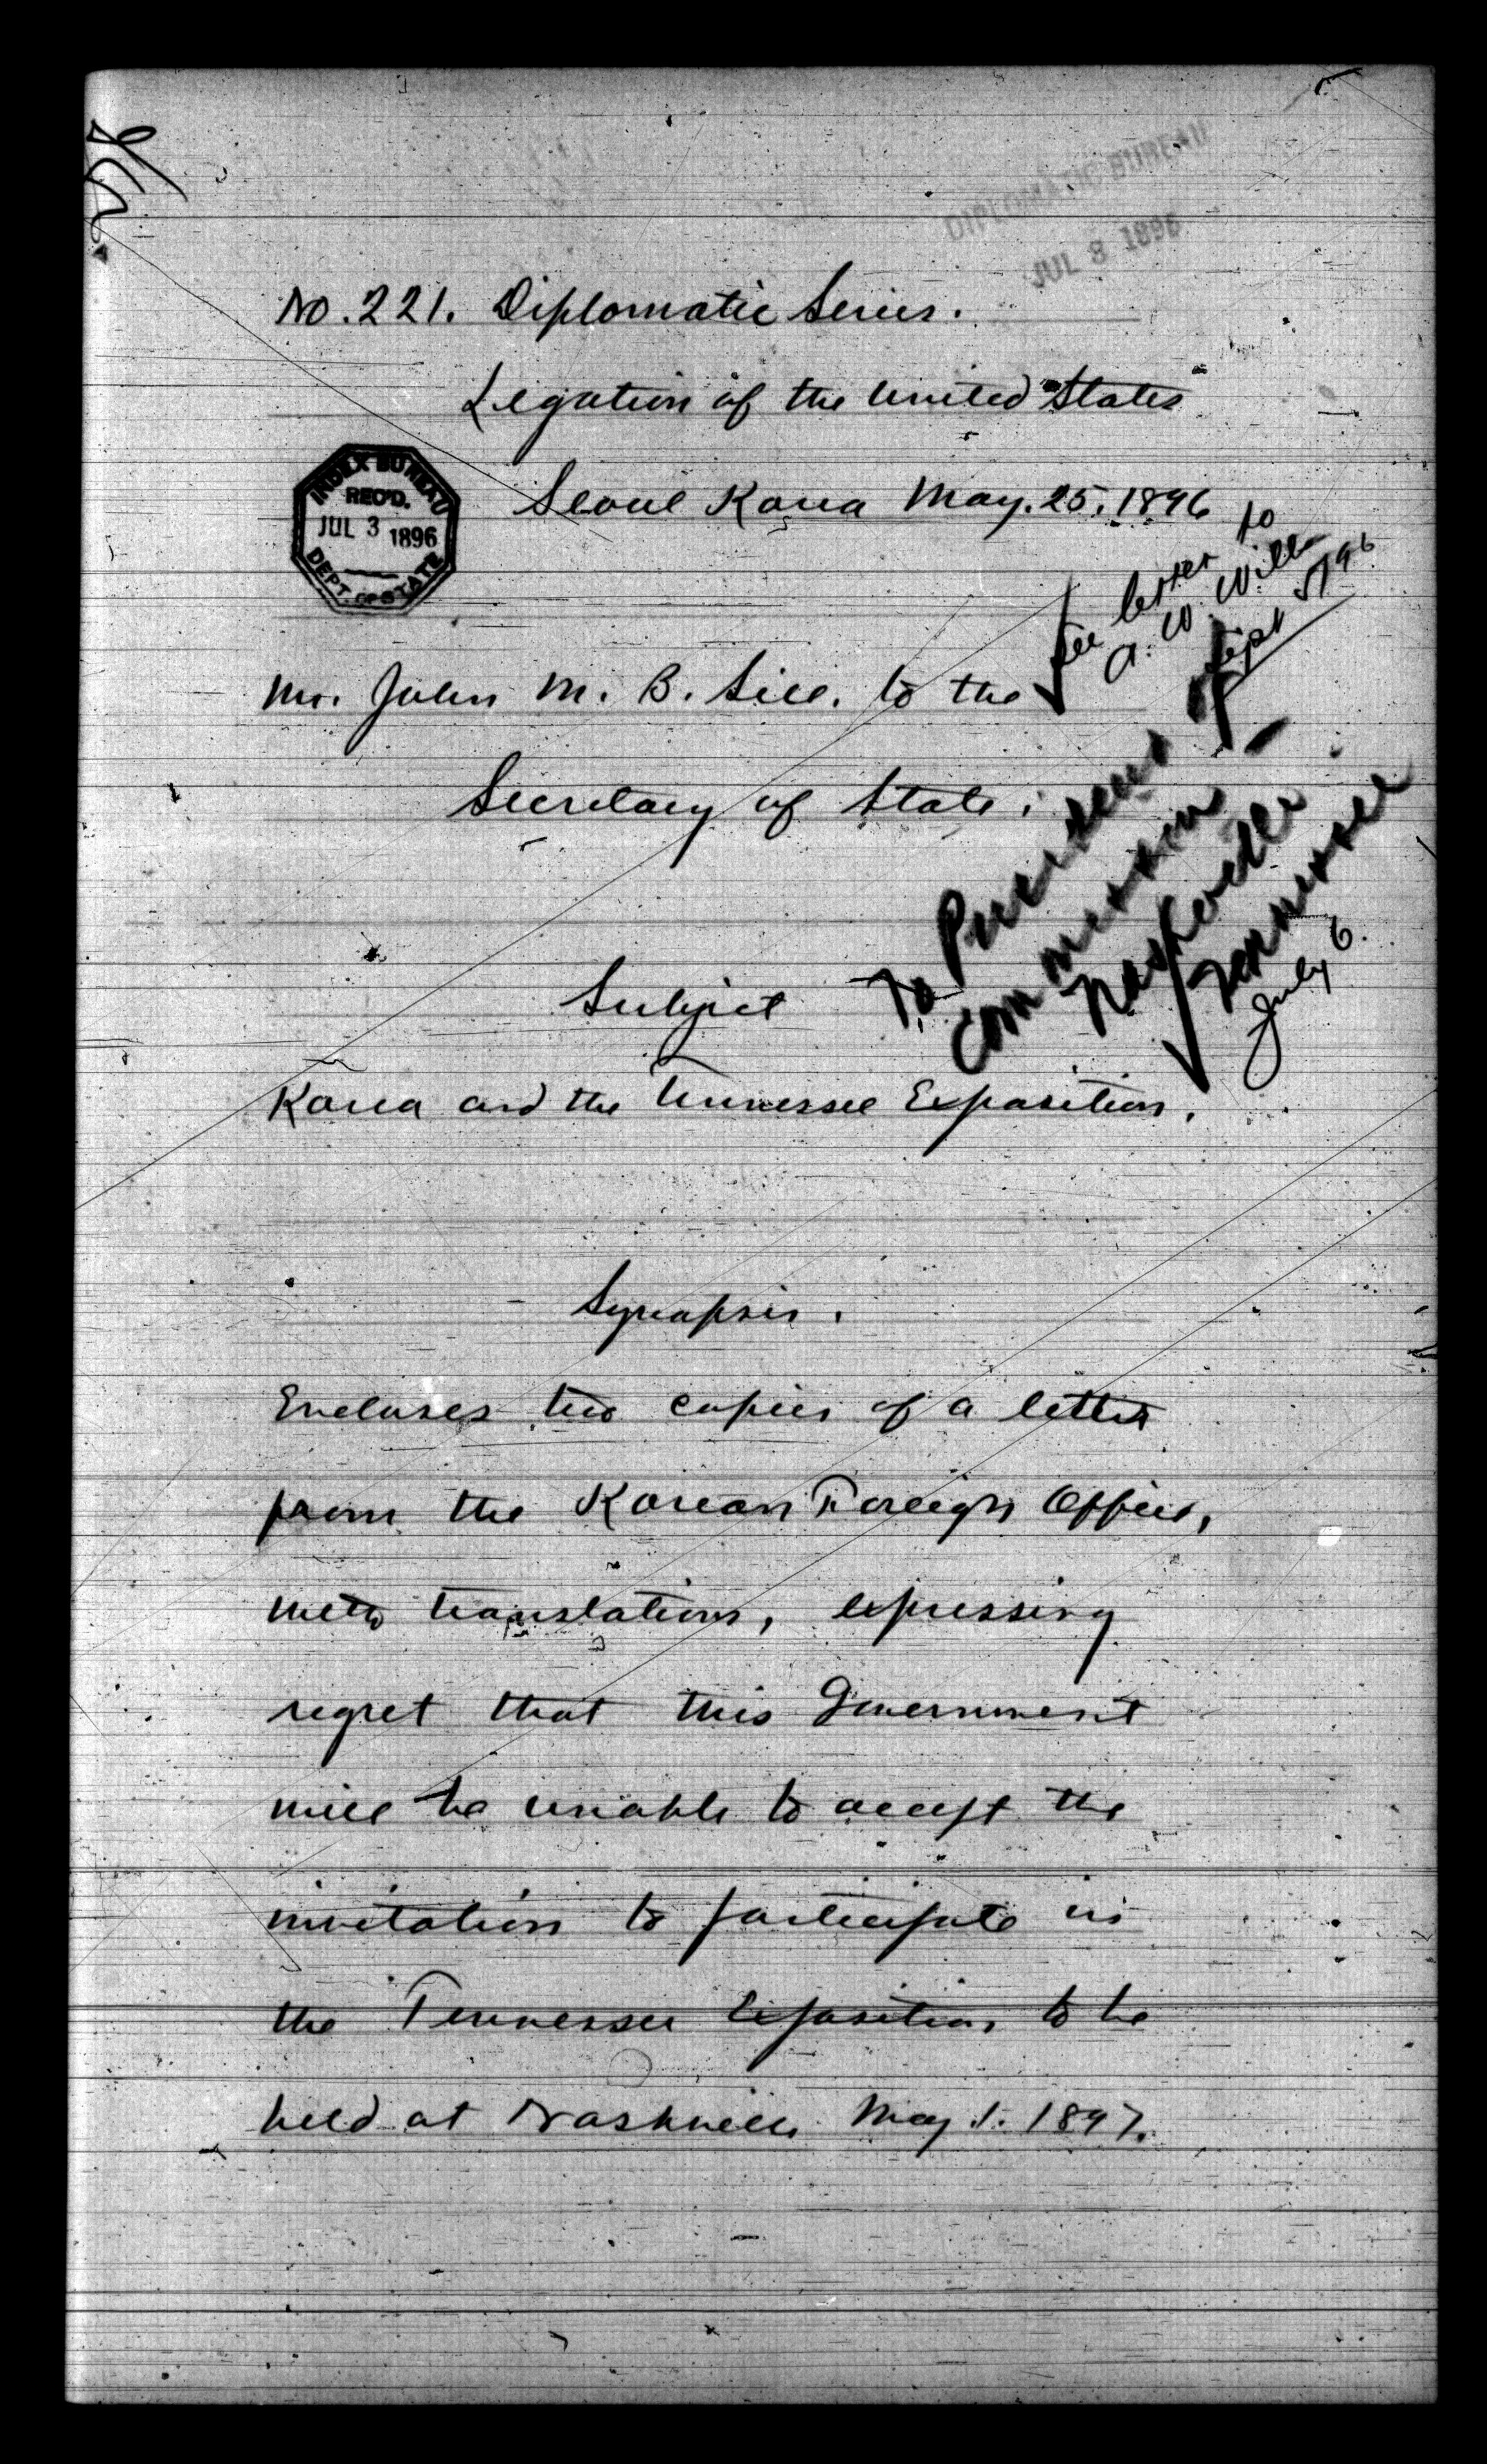 DIPLOMATIC BUREAU
JUL 3 1896
No. 221. Diplomatic Series.
Legation of the United States
Seoul Korea May. 25, 1896
INDEX BUREAU
REC'D.
JUL 3 1896
DEPT. OF STATE
See letter to
A. W. Wills
Sept 5/96
Mr. John M. B. Sill. to the
Secretary of State.
To President of
Commission
Nashville
Tennessee
July 6.
Subject
Korea and the Tennessee Exposition.
Synopsis.
Encloses two copies of a letter
from the Korean Foreign Office,
with translations, expressing
regret that this Government
will be unable to accept the
invitation to participate in
the Tennessee Exposition, to be
held at Nashville May 1. 1897.